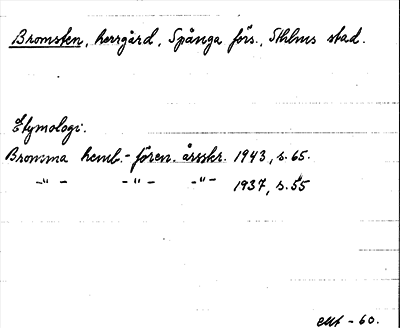 Bromsten, herrgård, Spånga förs., Sthlms stad.
Etymologi.
Bromma hemb.-fören. årsskr. 1943, s. 65.
-"- -"- -"- 1937, s. 55
- 60.